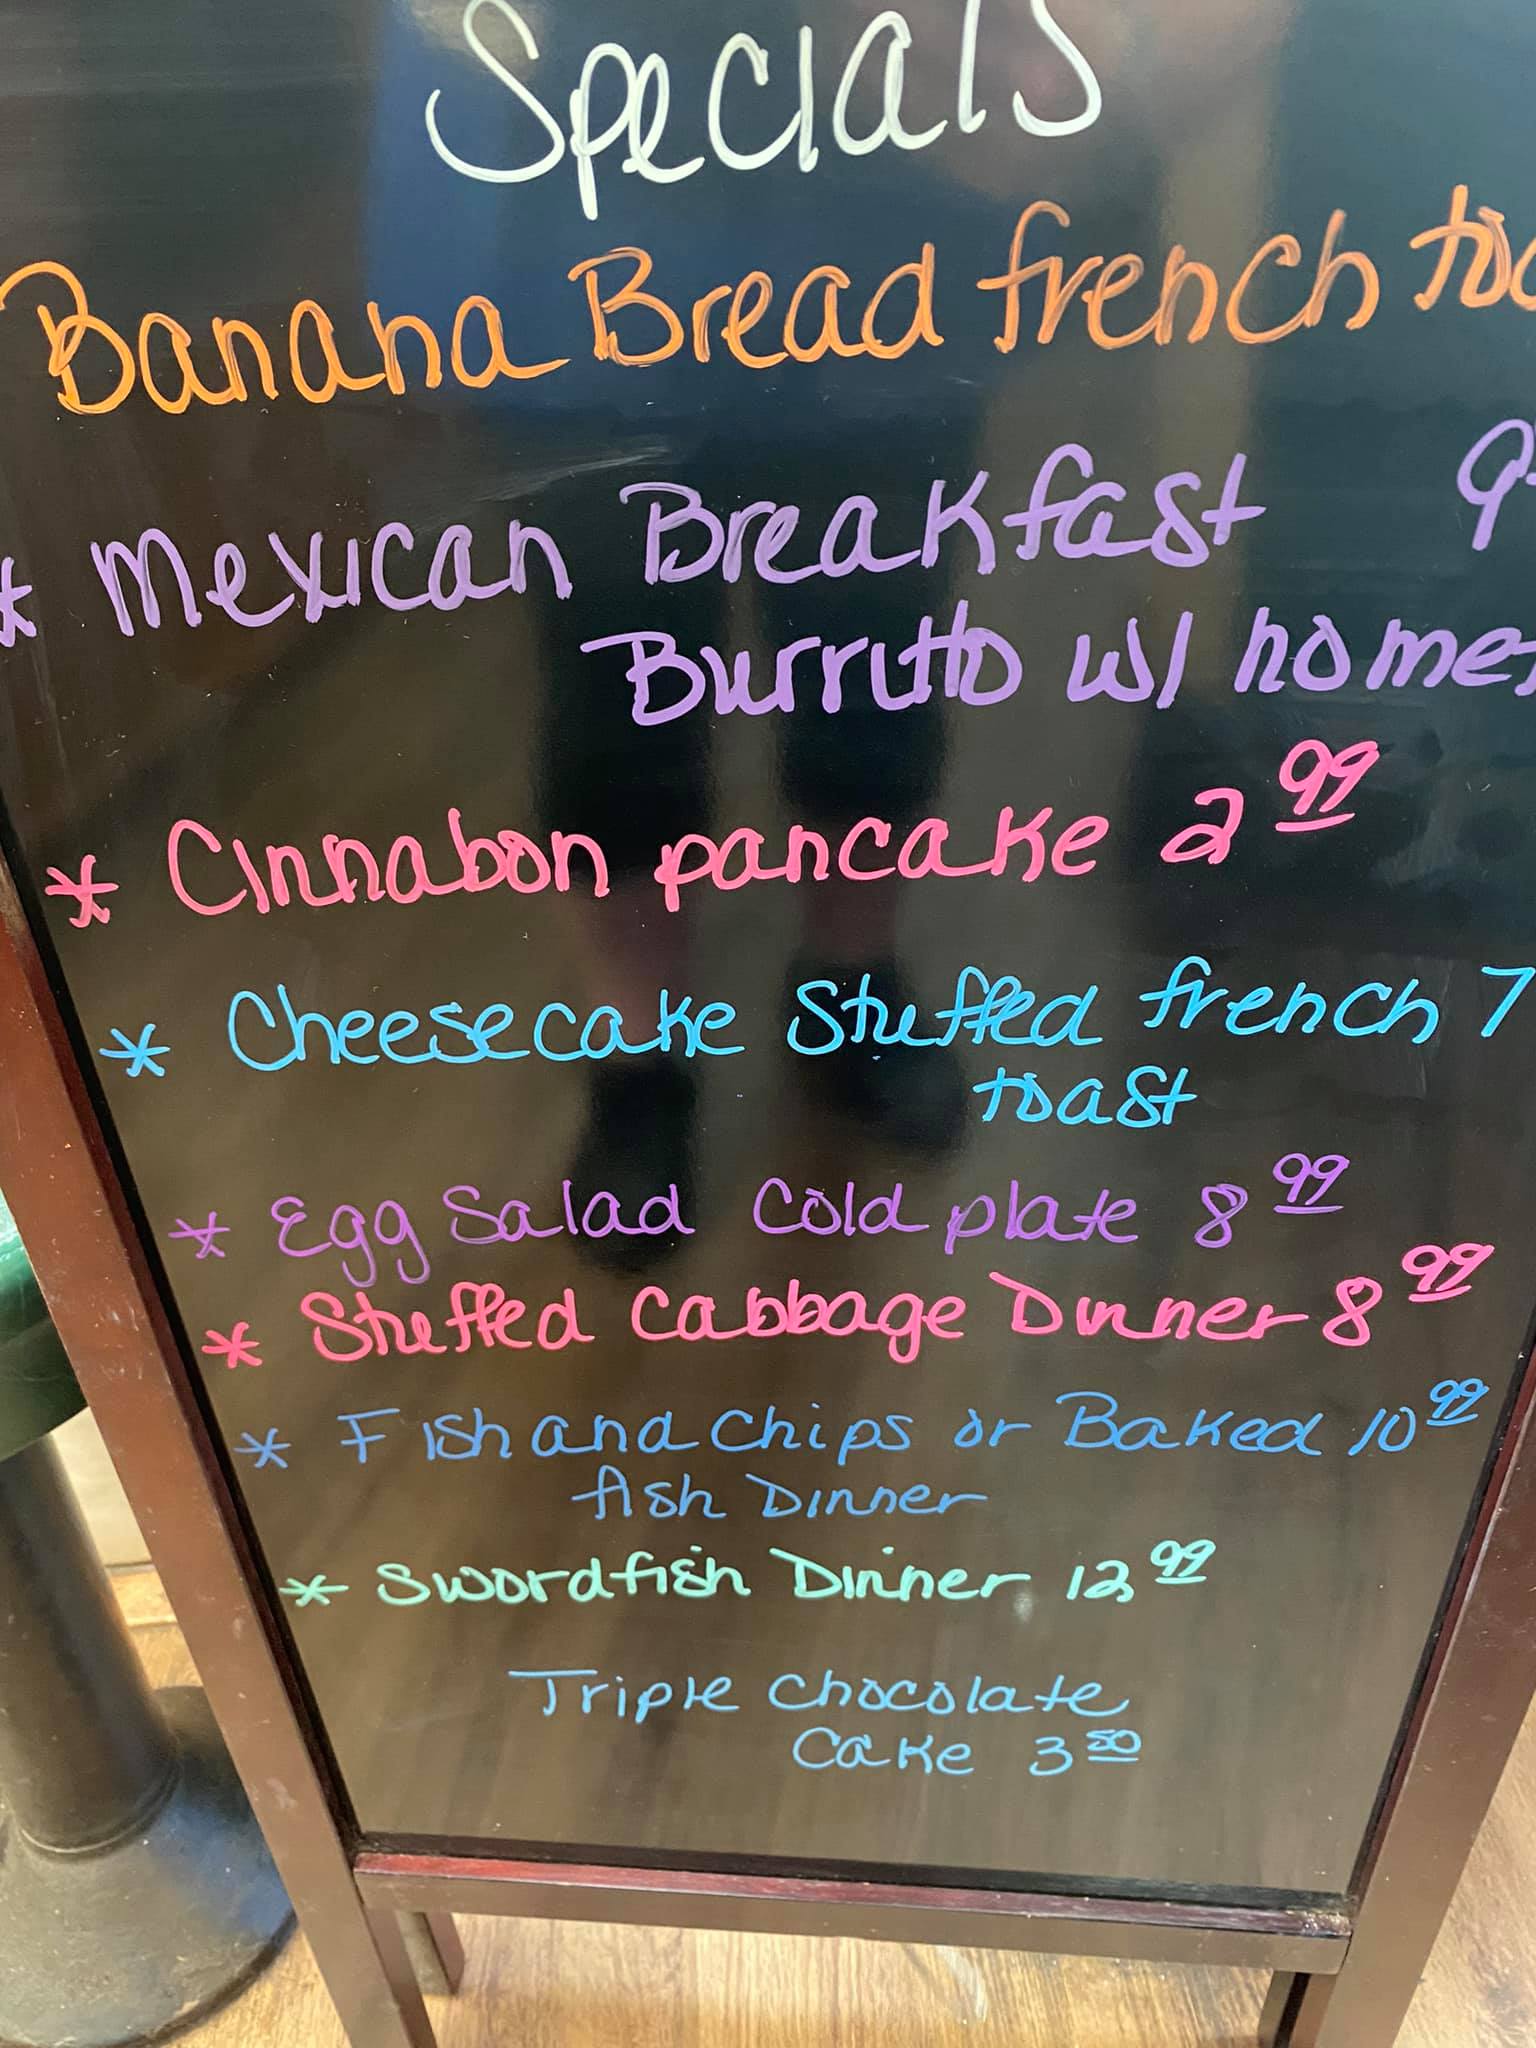 Specials
Banana Bread french toa
* Mexican Breakfast 9
Burrito w/ homes
* Cinnabon pancake 2 99
* Cheesecake Stuffed french 7
toast
* Egg Salad Cold plate 8 99
* Stuffed Cabbage Dinner 8 99
* Fish and Chips or Baked 10 99
fish Dinner
* Swordfish Dinner 12 99
Triple Chocolate
Cake 3 50